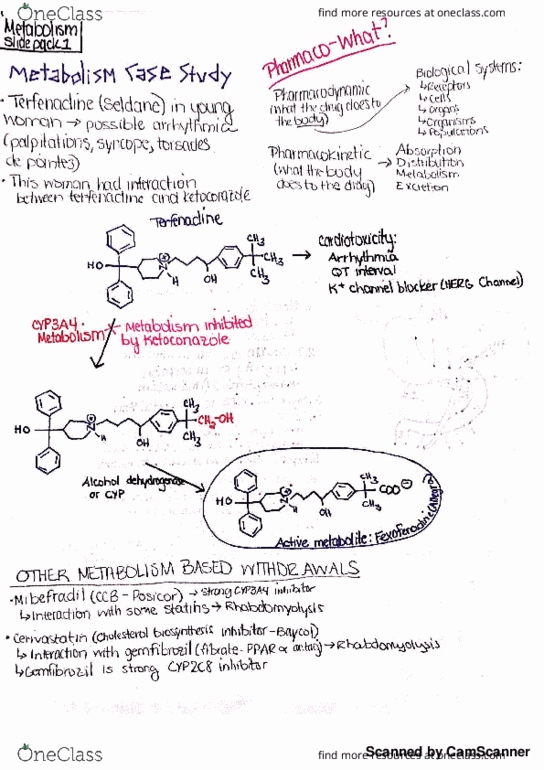 OneClass
find more resources at oneclass.com
Metabolism
Slidepack 1
Metabolism Case Study
• Terfenadine (Seldane) in young
woman → possible arrhythmia
(palpitations, syncope, torsades
de pointes)
• This woman had interaction
between terfenadine and ketoconazole
Pharmaco-What?
Pharmacodynamic
(what the drug does to
the body)
Biological Systems:
↳ Receptors
↳ Cells
↳ Organs
↳ Organisms
↳ Populations
Pharmacokinetic
(what the body
does to the drug)
→ Absorption
Distribution
Metabolism
Excretion
Terfenadine
HO
N
H
OH
CH3
CH3
CH3
→ Cardiotoxicity:
Arrhythmia
QT interval
K+ channel blocker (HERG Channel)
CYP3A4
Metabolism
Metabolism inhibited
by Ketoconazole
HO
N
H
OH
CH3
CH2-OH
CH3
Alcohol dehydrogenase
or CYP
HO
N
H
OH
CH3
COO⊖
CH3
Active metabolite: Fexofenadine (Allegra)
OTHER METABOLISM BASED WITHDRAWALS
• Mibefradil (CCB - Posicor) → strong CYP3A4 inhibitor
↳ Interaction with some statins → Rhabdomyolysis
• Cerivastatin (cholesterol biosynthesis inhibitor - Baycol)
↳ Interaction with gemfibrozil (fibrate - PPAR α → Rhabdomyolysis
↳ Gemfibrozil is strong CYP2C8 inhibitor
OneClass
find more resources at oneclass.com
Scanned by CamScanner